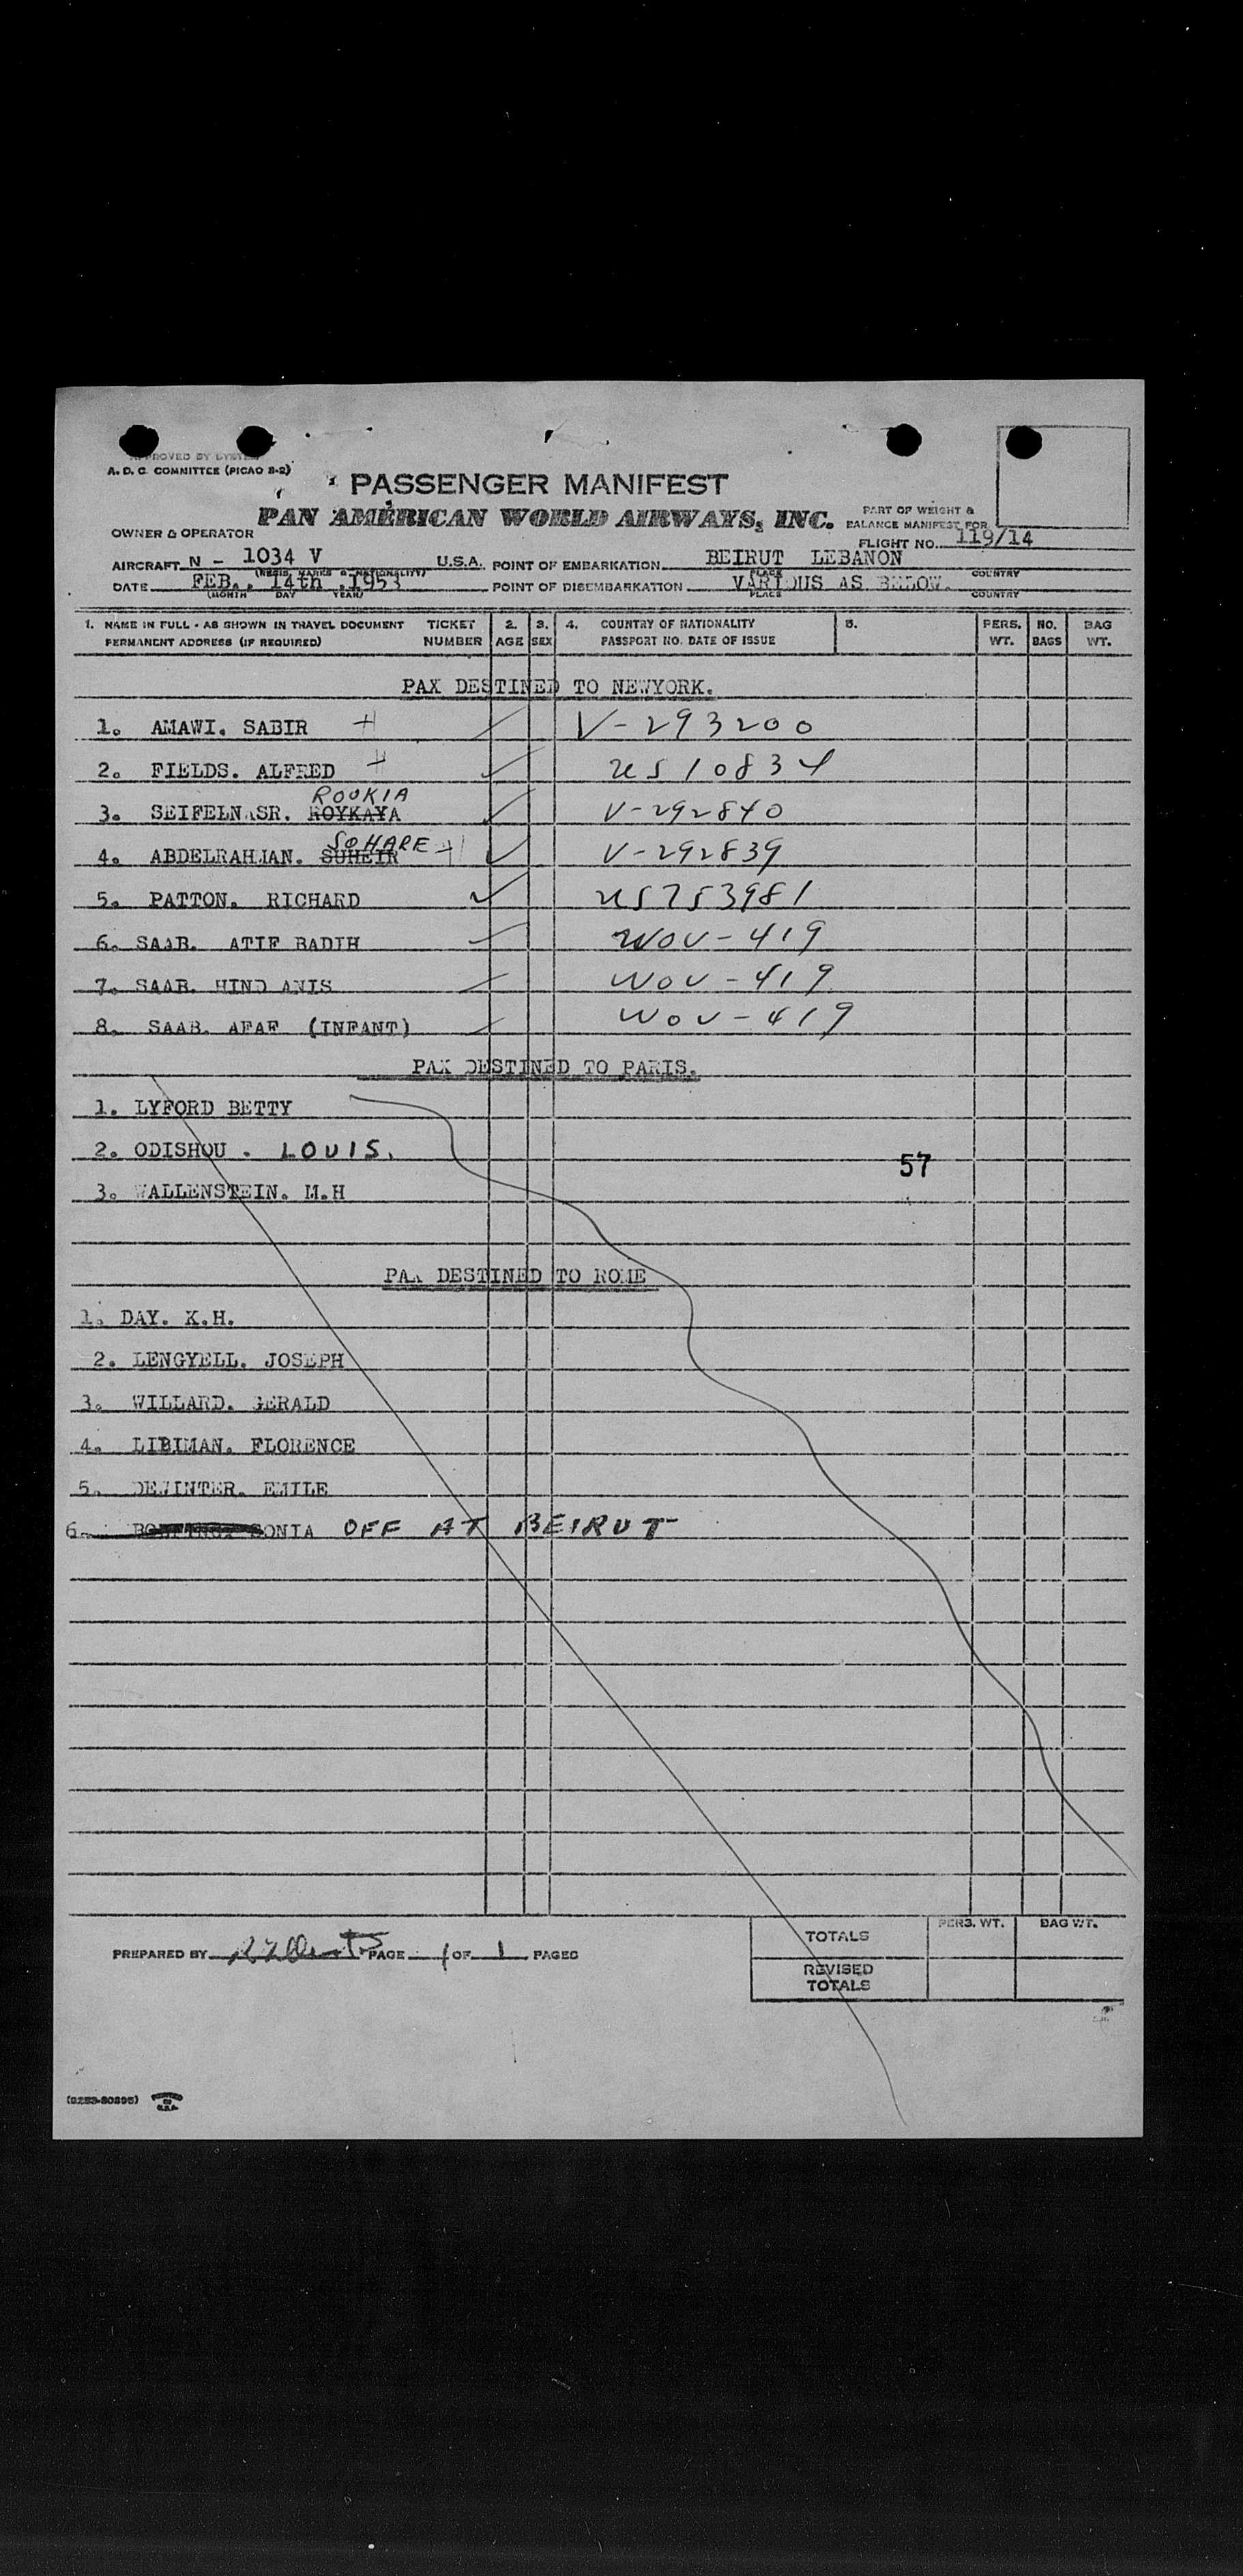 APPROVED BY
A. D. C. COMMITTEE (PICAO 8-2)
PASSENGER MANIFEST
PAN AMERICAN WORLD AIRWAYS, INC.
PART OF WEIGHT &
BALANCE MANIFEST FOR
OWNER & OPERATOR
FLIGHT NO. 119/14
AIRCRAFT N - 1034 V U.S.A. POINT OF EMBARKATION BEIRUT LEBANON
(REGIS. MARKS & NATIONALITY) PLACE COUNTRY
DATE FEB., 14th ,1953 POINT OF DISEMBARKATION VARIOUS AS BELOW.
(MONTH DAY YEAR) PLACE COUNTRY
1. NAME IN FULL - AS SHOWN IN TRAVEL DOCUMENT TICKET 2. 3. 4. COUNTRY OF NATIONALITY 5. PERS. NO. BAG
PERMANENT ADDRESS (IF REQUIRED) NUMBER AGE SEX PASSPORT NO. DATE OF ISSUE WT. BAGS WT.
PAX DESTINED TO NEWYORK.
1. AMAWI. SABIR V-293200
2. FIELDS. ALFRED US10834
ROUKIA
3. SEIFELNASR. ROYKAYA V-292840
SOHARE
4. ABDELRAHMAN. SUHEIR V-292839
5. PATTON. RICHARD US753981
6. SAAB. ATIF BADIH WOV-419
7. SAAB. HIND ANIS WOV-419
8. SAAB. AFAF (INFANT) WOV-419
PAX DESTINED TO PARIS.
1. LYFORD BETTY
2. ODISHOU . LOUIS.
57
3. WALLENSTEIN. M.H
PAX DESTINED TO ROME
1. DAY. K.H.
2. LENGYELL. JOSEPH
3. WILLARD. GERALD
4. LIBIMAN. FLORENCE
5. DEWINTER. EMILE
6. SONIA OFF AT BEIRUT
PREPARED BY PAGE 1 OF 1 PAGES
PERS. WT. BAG WT.
TOTALS
REVISED
TOTALS
PRINTED
IN
U.S.A.